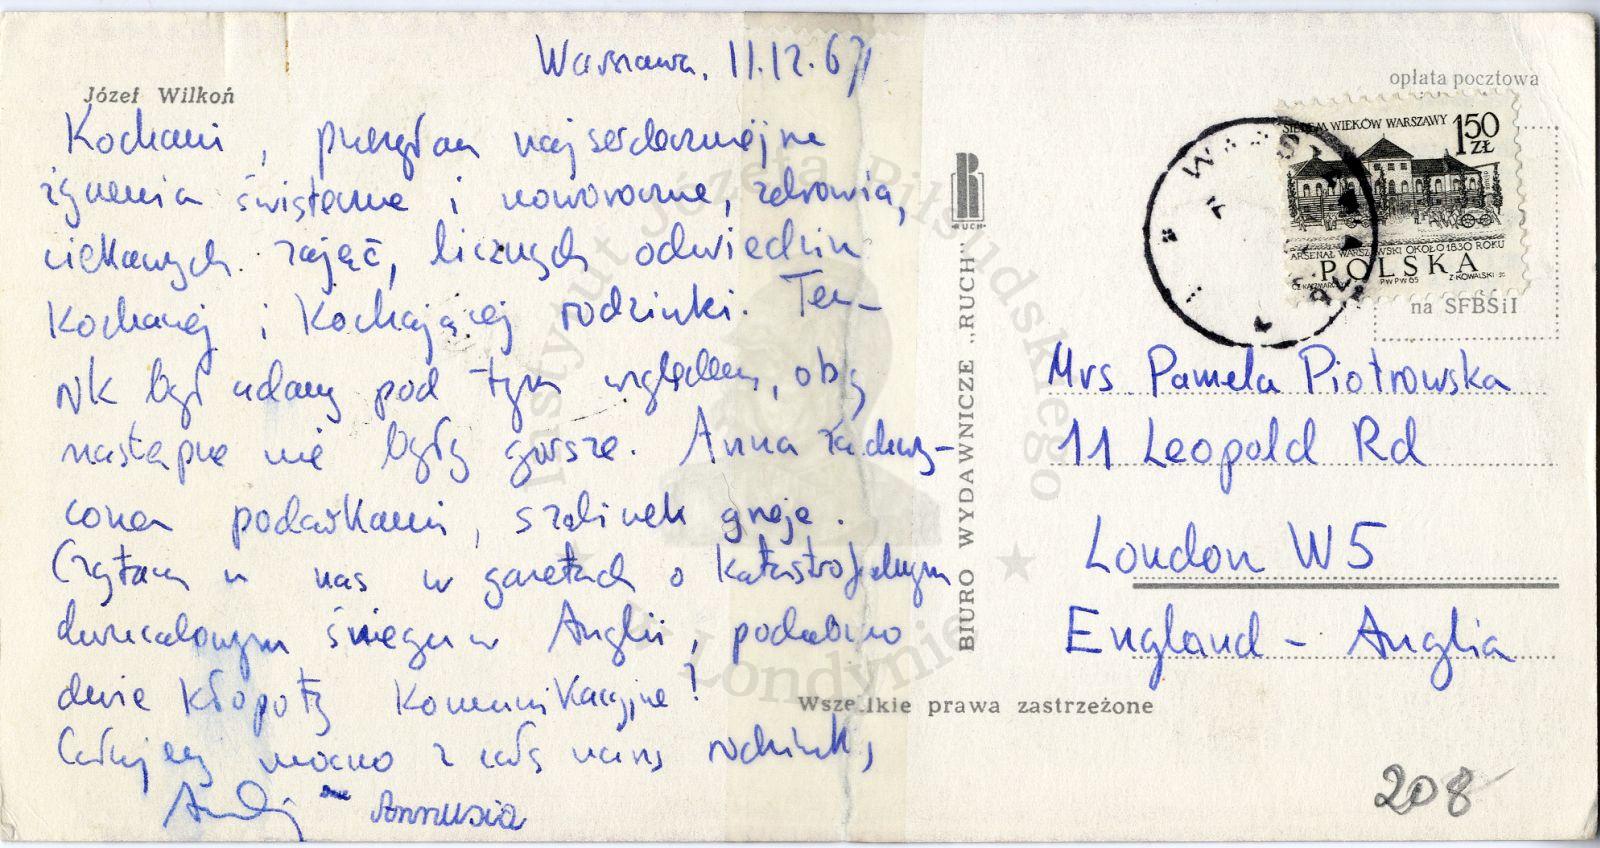 Warszawa, 11.12.67
Józef Wilkoń
Kochani, przesyłam najserdeczniejsze
życzenia świąteczne i noworoczne, zdrowia,
ciekawych zajęć, licznych odwiedzin
Kochanej i Kochającej rodzinki. Ten
rok był udany pod tym względem, oby
następne nie były gorsze. Anna zachwy-
cona podarkami, szalinek grzeje.
Czytam u nas w gazetach o katastrofalnym
śniegu w Anglii, podobno
duże kłopoty komunikacyjne?
Całujemy mocno z całą naszą rodzinką
Andrzej Annusia
BIURO WYDAWNICZE „RUCH”
RUCH
Wszelkie prawa zastrzeżone
opłata pocztowa
SIEDEM WIEKÓW WARSZAWY 1,50 ZŁ
ARSENAŁ WARSZAWSKI OKOŁO 1830 ROKU
POLSKA
CZ. KACZMARCZYK PWPW 65 Z. KOWALSKI
na SFBSiI
Mrs. Pamela Piotrowska
11 Leopold Rd
London W5
England - Anglia
208
Instytut Józefa Piłsudskiego
w Londynie